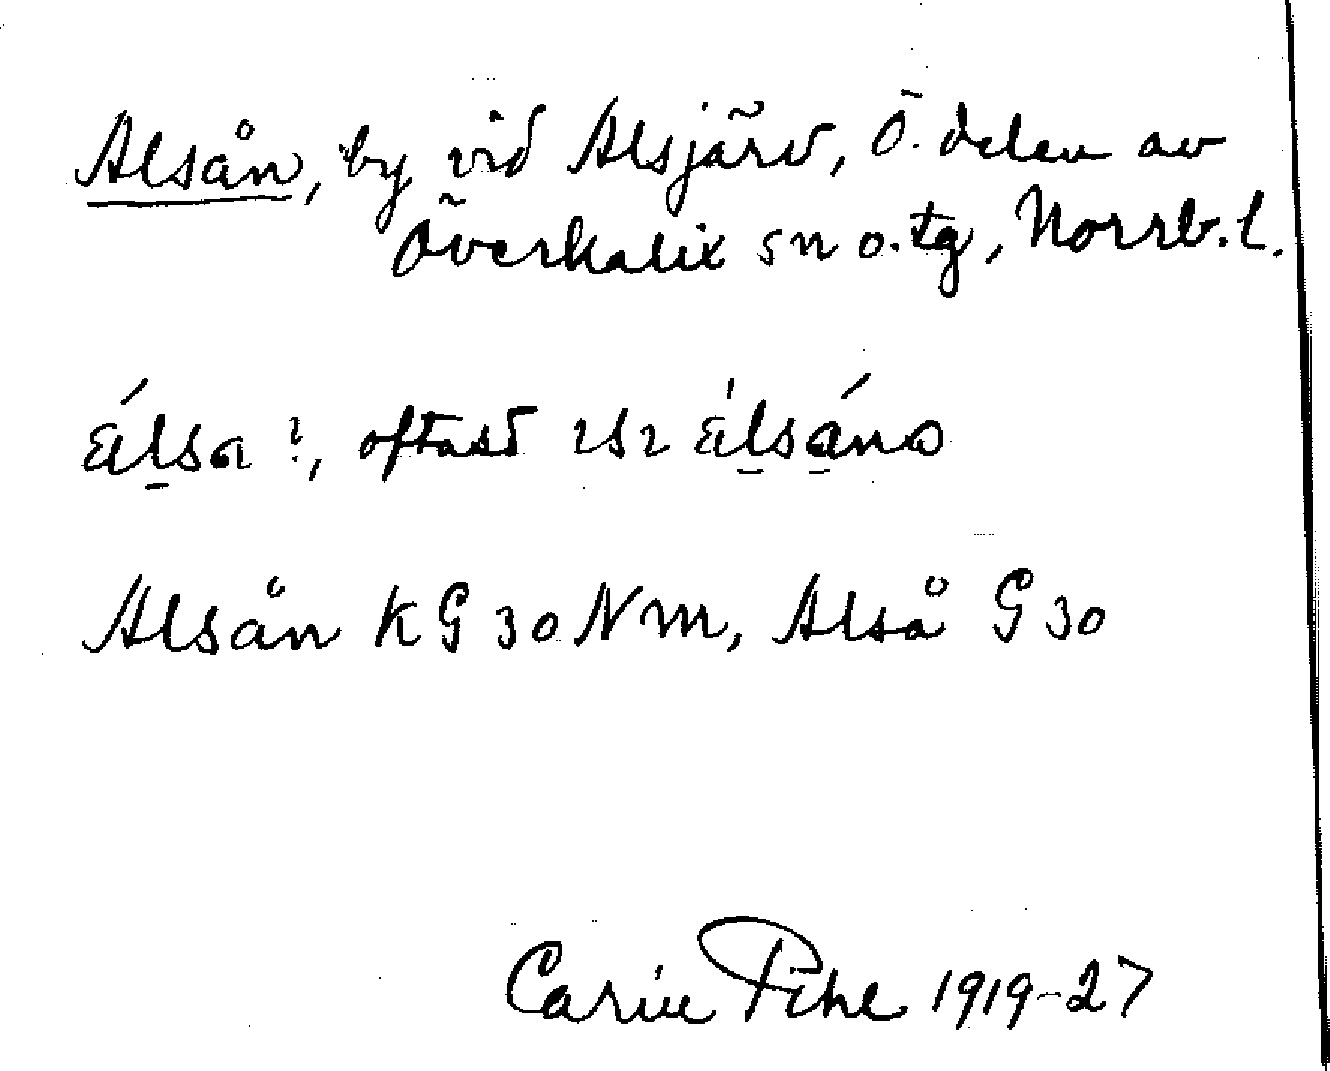 Alsån, by vid Alsjärv, Ö. delen av
Överkalix sn o. tg, Norrb. l.
oftast
Alsån KG 30 NM, Alså G 30
Carin Pihl 1919-27